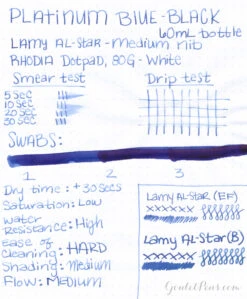 PLATINUM BLUE-BLACK
60mL bottle
LAMY AL-STAR-Medium nib
RHODIA Dotpad, 80G - White
Smear test
Drip test
5 Sec
10 Sec
20 Sec
30 Sec
SWABS:
1 2 3
Dry time: +30 Secs
Saturation: Low
Water Resistance: High
Ease of Cleaning: HARD
Shading: Medium
Flow: MEDIUM
Lamy Al-Star (EF)
xxxxxx
Lamy Al-Star (B)
xxxxxx
GouletPens.com